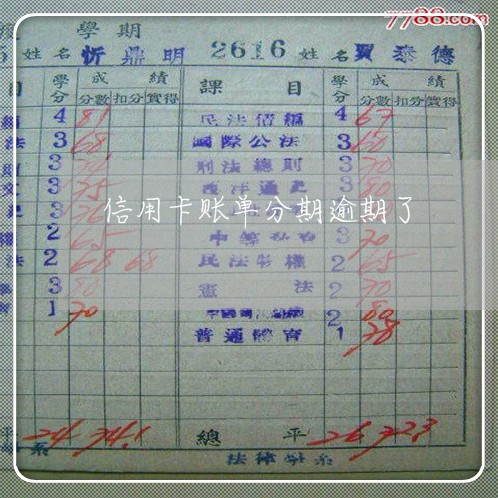 7788.com
學期
姓名 忻鼎明 2616 姓名 賈泰德
目 學分 成績 課目 學分 成績
分數 扣分 實得 分數 扣分 實得
4 81 民法債編 4 67
法 3 68 國際公法 3 60
3 刑法總則 3 70
3 75 西洋通史 3 80
信用卡账单分期逾期了
2 65 3 70
法 2 68 68 民法物權 2 65
3 80 憲法 2 70
1 70 2 80
普通體育 1 78
平 24 74.1 總平 26 72.3
系 法律學系